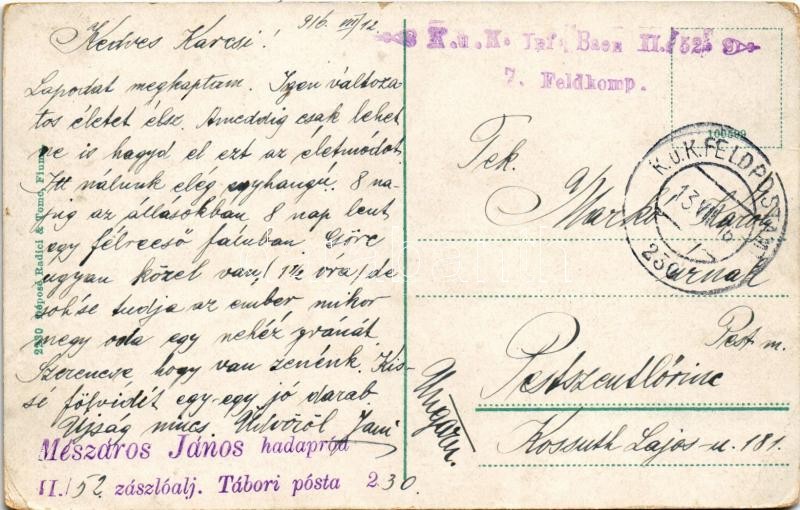 916. VIII/12.
Kedves Karcsi!
Lapodat megkaptam. Igen változa-
tos életet élsz. Ameddig csak lehet
ne is hagyd el ezt az életmódot.
Itt nálunk elég egyhangú. 8 na-
pig az állásokban 8 nap lent
egy félreeső faluban. Görc
ugyan közel van! 1½ óra! de
sohse tudja az ember mikor
megy oda egy nehéz gránát
Szerencse hogy van zenénk. Kis-
sé fölvidít egy-egy jó darab.
Ujság nincs. Üdvözöl Jani
Mészáros János hadapród
II./52 zászlóalj. Tábori pósta 230.
2230 Déposé Radici & Tomc, Fiume
K.u.K. Inf. Baon II./52
7. Feldkomp.
100599
K.U.K. FELDPOSTAMT
13 VIII 16
230
Tek.
Markó Károly
urnak
Pest m.
Pestszentlőrinc
Kossuth Lajos-u. 181.
Ungarn.